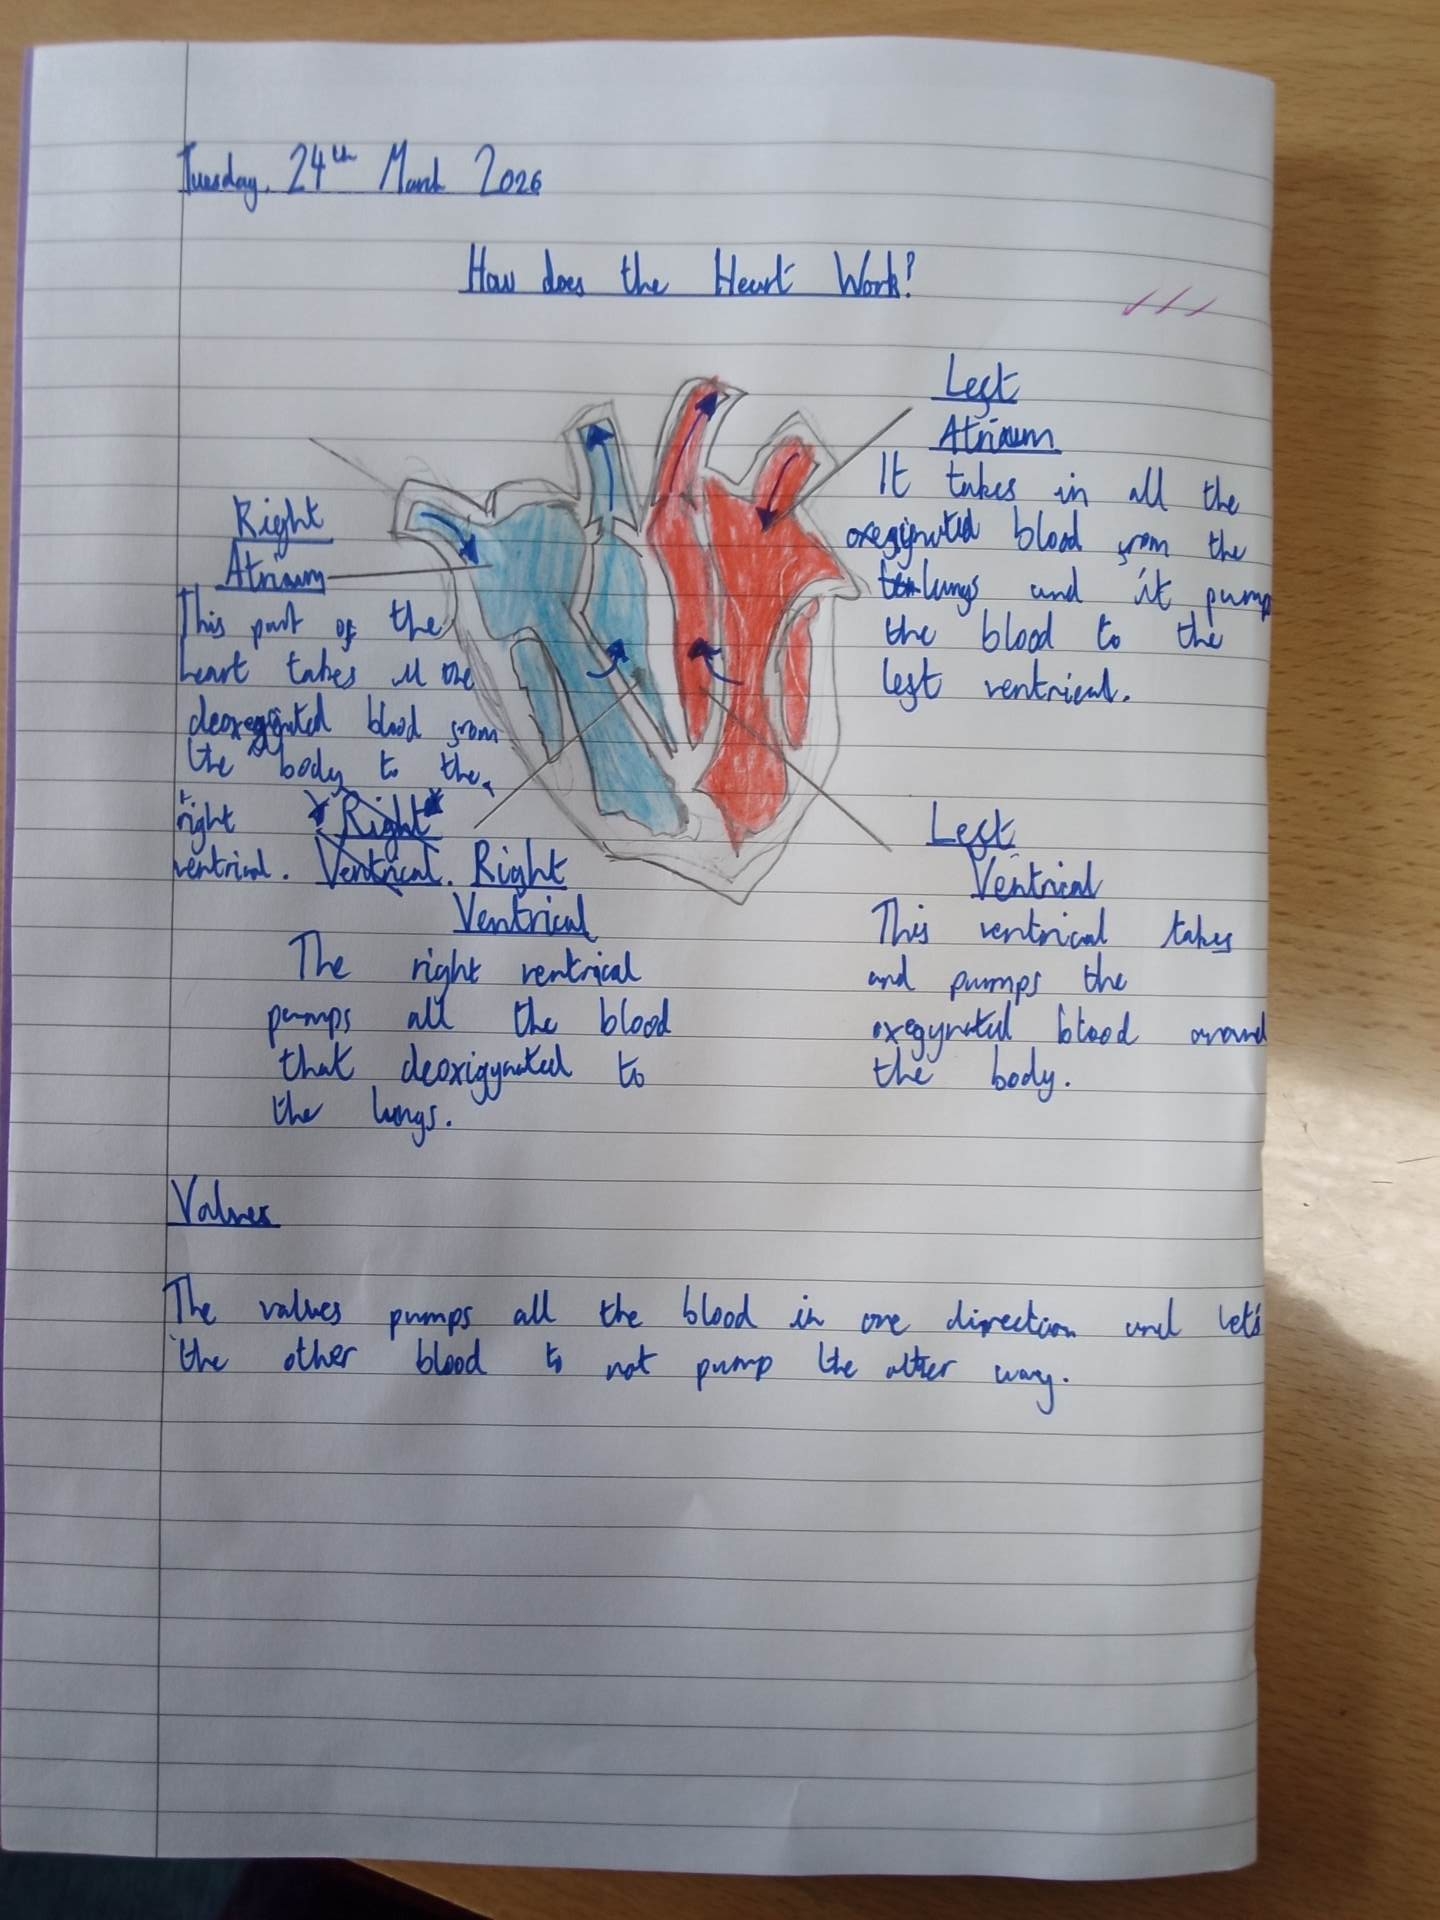 Tuesday, 24th March 2026
How does the Heart Work?
Left
Atrium
It takes in all the
oxeginated blood from the
lungs and it pump
the blood to the
left ventrical.
Right
Atrium
This part of the
heart takes all the
deoxeginated blood from
the body to the
right
ventrical.
Right
Ventrical.
Right
Ventrical
The right ventrical
pumps all the blood
that deoxigynated to
the lungs.
Left
Ventrical
This ventrical takes
and pumps the
oxegynated blood around
the body.
Valves
The valves pumps all the blood in one direction and let's
the other blood to not pump the other way.